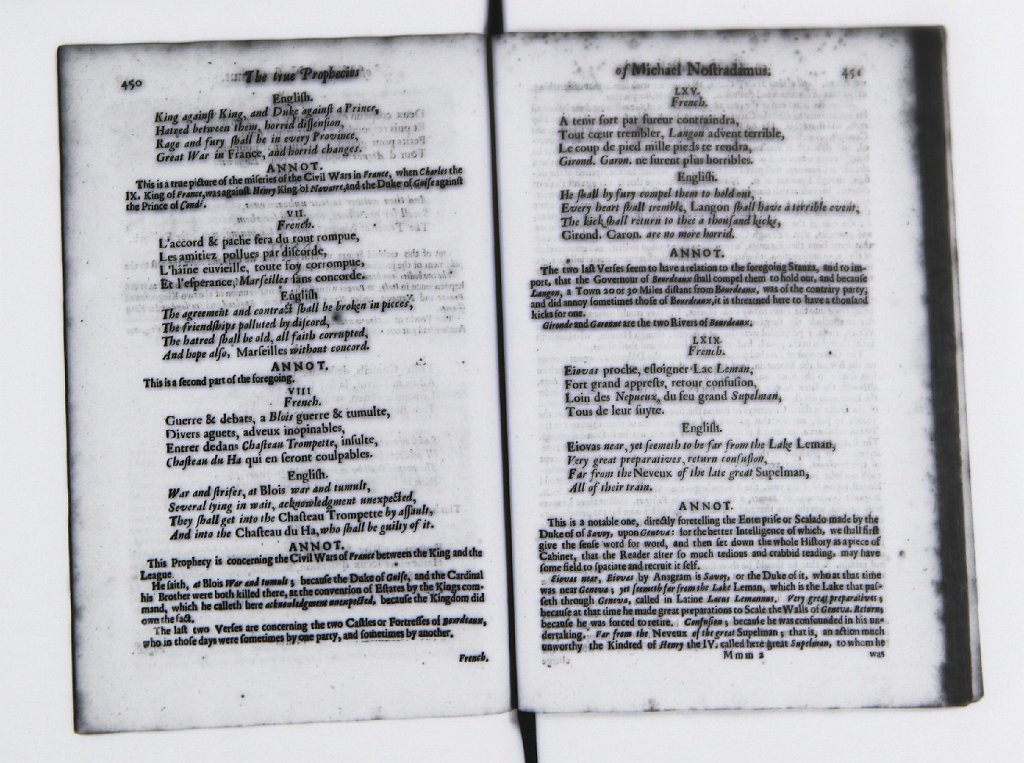 450 The true Prophecies
English.
King against King, and Duke against a Prince,
Hatred between them, horrid dissension,
Rage and fury shall be in every Province,
Great War in France, and horrid changes.
ANNOT.
This is a true picture of the miseries of the Civil Wars in France, when Charles the
IX. King of France, was against Henry King of Navarr, and the Duke of Guise against
the Prince of Condé.
VII.
French.
L'accord & pache sera du tout rompue,
Les amitiez pollues par discorde,
L'haine euvieille, toute foy corrompue,
Et l'esperance, Marseilles sans concorde.
English
The agreement and contract shall be broken in pieces,
The friendships polluted by discord,
The hatred shall be old, all faith corrupted,
And hope also, Marseilles without concord.
ANNOT.
This is a second part of the foregoing.
VIII
French.
Guerre & debats, a Blois guerre & tumulte,
Divers aguets, adveux inopinables,
Entrer dedans Chasteau Trompette, insulte,
Chasteau du Ha qui en seront coulpables.
English.
War and strifes, at Blois war and tumult,
Several lying in wait, acknowledgment unexpected,
They shall get into the Chasteau Trompette by assault,
And into the Chasteau du Ha, who shall be guilty of it.
ANNOT.
This Prophecy is concerning the Civil Wars of France between the King and the
League.
He saith, at Blois War and tumult; because the Duke of Guise, and the Cardinal
his Brother were both killed there, at the convention of Estates by the Kings com-
mand, which he calleth here acknowledgment unexpected, because the Kingdom did
own the fact.
The last two Verses are concerning the two Castles or Fortresses of Bourdeaux,
who in those days were sometimes by one party, and sometimes by another.
French.
of Michael Nostradamus. 451
LXV.
French.
A tenir fort par fureur contraindra,
Tout cœur trembler, Langon advent terrible,
Le coup de pied mille pieds te rendra,
Girond. Garon. ne furent plus horribles.
English.
He shall by fury compel them to hold out,
Every heart shall tremble, Langon shall have a terrible event,
The kick shall return to thee a thousand kicks,
Girond. Garon. are no more horrid.
ANNOT.
The two last Verses seem to have a relation to the foregoing Stanza, and to im-
port, that the Governour of Bourdeaux shall compel them to hold out, and because
Langon, a Town 20 or 30 Miles distant from Bourdeaux, was of the contrary party;
and did annoy sometimes those of Bourdeaux, it is threatned here to have a thousand
kicks for one.
Gironde and Garonne are the two Rivers of Bourdeaux.
LXIX.
French.
Eiovas proche, esloigner Lac Leman,
Fort grand apprests, retour confusion,
Loin des Nepueux, du feu grand Supelman,
Tous de leur suyte.
English.
Eiovas near, yet seemeth to be far from the Lake Leman,
Very great preparatives, return confusion,
Far from the Neveux of the late great Supelman,
All of their train.
ANNOT.
This is a notable one, directly foretelling the Enterprise or Scalado made by the
Duke of of Savoy, upon Geneva: for the better Intelligence of which, we shall first
give the sense word for word, and then set down the whole History as a piece of
Cabinet, that the Reader after so much tedious and crabbid reading, may have
some field to spatiate and recruit it self.
Eiovas near, Eiovas by Anagram is Savoy, or the Duke of it, who at that time
was near Geneva; yet seemeth far from the Lake Leman, which is the Lake that pas-
seth through Geneva, called in Latine Lacus Lemannus. Very great preparations;
because at that time he made great preparations to Scale the Walls of Geneva. Return;
because he was forced to retire. Confusion; because he was confounded in his un-
dertaking. Far from the Neveux of the great Supelman; that is, an action much
unworthy the Kindred of Henry the IV. called here great Supelman, to whom he
Mmm 2 was